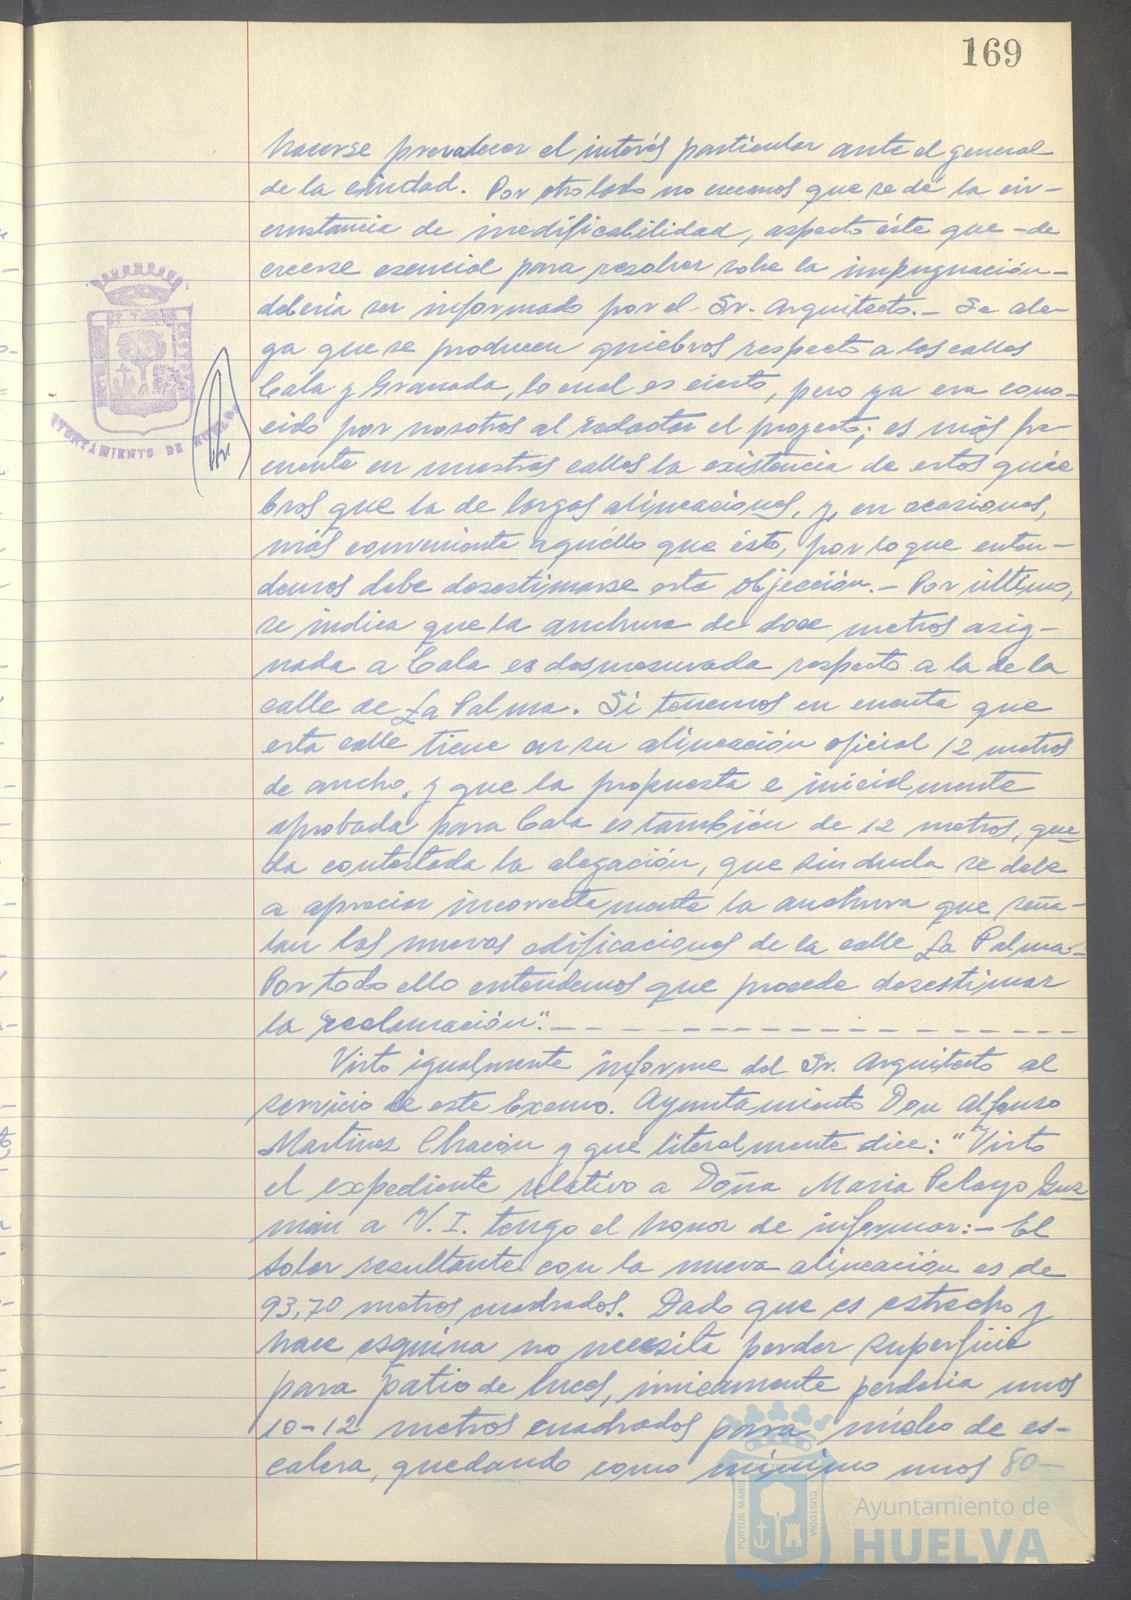 169
hacerse prevalecer el interés particular ante el general
de la ciudad. Por otro lado no creemos que se dé la cir-
cunstancia de inedificabilidad, aspecto éste que -de
creerse esencial para resolver sobre la impugnación-
debería ser informado por el Sr. Arquitecto.- Se ale-
ga que se producen quiebros respecto a las calles
Cala y Granada, lo cual es cierto, pero ya era cono-
cido por nosotros al redactar el proyecto; es más fre-
cuente en nuestras calles la existencia de estos quie
bros que la de largas alineaciones, y, en ocasiones,
más conveniente aquéllo que ésto, por lo que enten-
demos debe desestimarse esta objección.- Por último,
se indica que la anchura de doce metros asig-
nada a Cala es desmesurada respecto a la de la
calle de La Palma. Si tenemos en cuenta que
esta calle tiene en su alineación oficial 12 metros
de ancho, y que la propuesta e inicialmente
aprobada para Cala es también de 12 metros, que-
da contestada la alegación, que sin duda se debe
a apreciar incorrectamente la anchura que seña-
lan las nuevas edificaciones de la calle La Palma.-
Por todo ello entendemos que procede desestimar
la reclamación".-
Visto igualmente informe del Sr. Arquitecto al
servicio de este Excmo. Ayuntamiento Don Alfonso
Martínez Chacón y que literalmente dice: "Visto
el expediente relativo a Doña Maria Pelayo Guz
mán a V. I. tengo el honor de informar:- El
solar resultante con la nueva alineación es de
93,70 metros cuadrados. Dado que es estrecho y
hace esquina no necesita perder superficie
para patio de luces, únicamente perdería unos
10-12 metros cuadrados para núcleo de es-
calera, quedando como mínimo unos 80-
AYUNTAMIENTO DE HUELVA
PORTUS MARIS
CUSTODIA
Ayuntamiento de
HUELVA